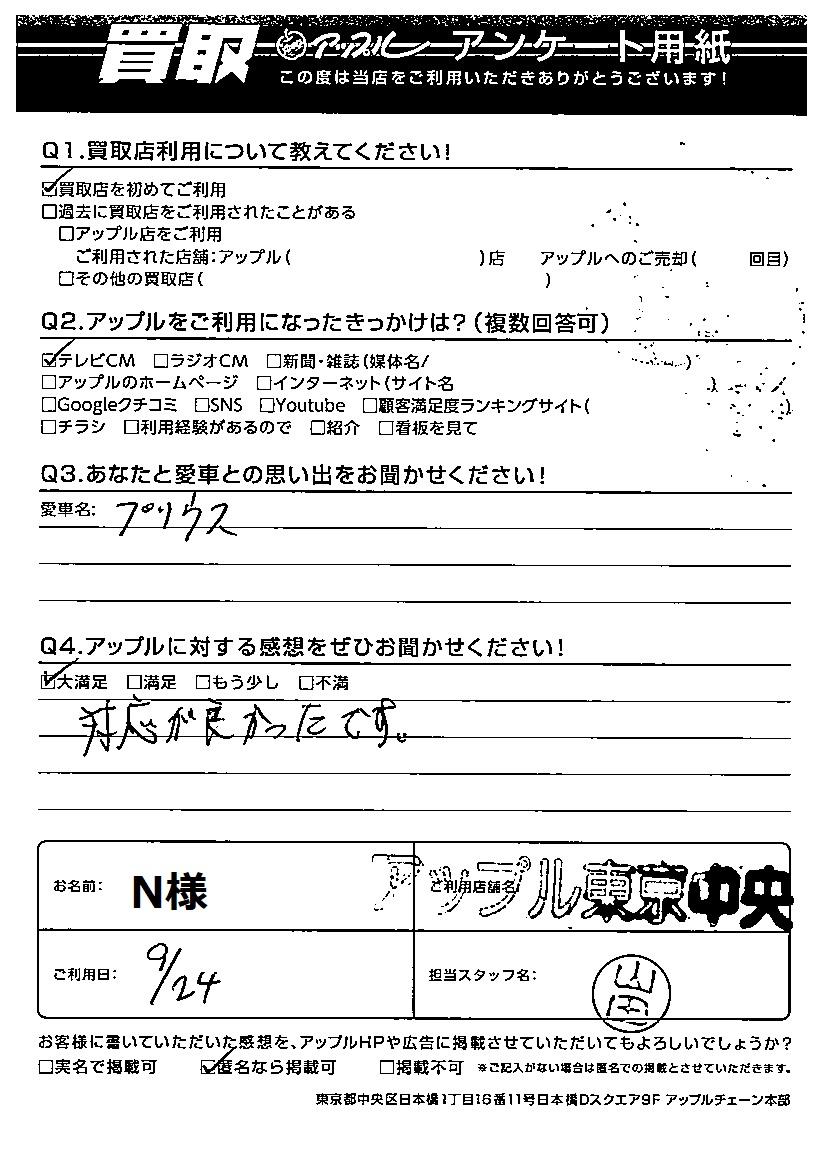 買取 アップル アンケート用紙
この度は当店をご利用いただきありがとうございます!
Q1.買取店利用について教えてください!
☑買取店を初めてご利用
□過去に買取店をご利用されたことがある
□アップル店をご利用
ご利用された店舗:アップル( )店 アップルへのご売却( 回目)
□その他の買取店( )
Q2.アップルをご利用になったきっかけは?(複数回答可)
☑テレビCM □ラジオCM □新聞・雑誌(媒体名/ )
□アップルのホームページ □インターネット(サイト名 )
□Googleクチコミ □SNS □Youtube □顧客満足度ランキングサイト( )
□チラシ □利用経験があるので □紹介 □看板を見て
Q3.あなたと愛車との思い出をお聞かせください!
愛車名: プリウス
Q4.アップルに対する感想をぜひお聞かせください!
☑大満足 □満足 □もう少し □不満
対応が良かったです。
お名前: N様 ご利用店舗名 アップル東京中央
ご利用日: 9/24 担当スタッフ名: 山岡
お客様に書いていただいた感想を、アップルHPや広告に掲載させていただいてもよろしいでしょうか?
□実名で掲載可 ☑匿名なら掲載可 □掲載不可 ※ご記入がない場合は匿名での掲載とさせていただきます。
東京都中央区日本橋1丁目16番11号日本橋Dスクエア9F アップルチェーン本部